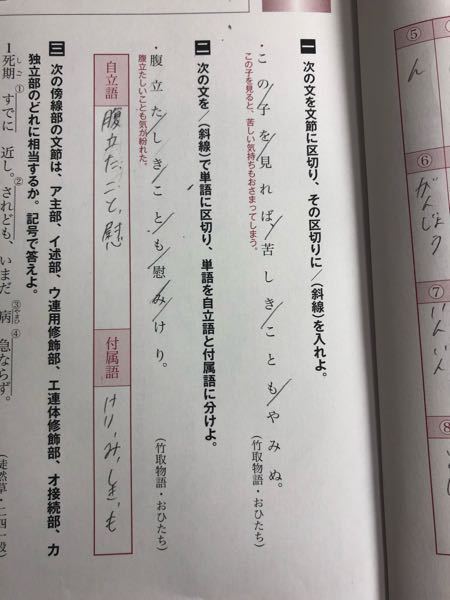 ⑤
ん
⑥
がんじょう
⑦
いんいん
⑧
一 次の文を文節に区切り、その区切りに/(斜線)を入れよ。
・この/子を/見れば/苦しき/ことも/やみぬ。
(竹取物語・おひたち)
この子を見ると、苦しい気持ちもおさまってしまう。
二 次の文を/(斜線)で単語に区切り、単語を自立語と付属語に分けよ。
・腹立た/しき/こと/も/慰み/けり。
(竹取物語・おひたち)
腹立たしいことも気が紛れた。
自立語
腹立た、こと、慰
付属語
けり、み、しき、も
三 次の傍線部の文節は、ア主部、イ述部、ウ連用修飾部、エ連体修飾部、オ接続部、カ
独立部のどれに相当するか。記号で答えよ。
1 死期①すでに近し。②されども、いまだ③病④急ならず。
しご
やまひ
(徒然草・二四一段)